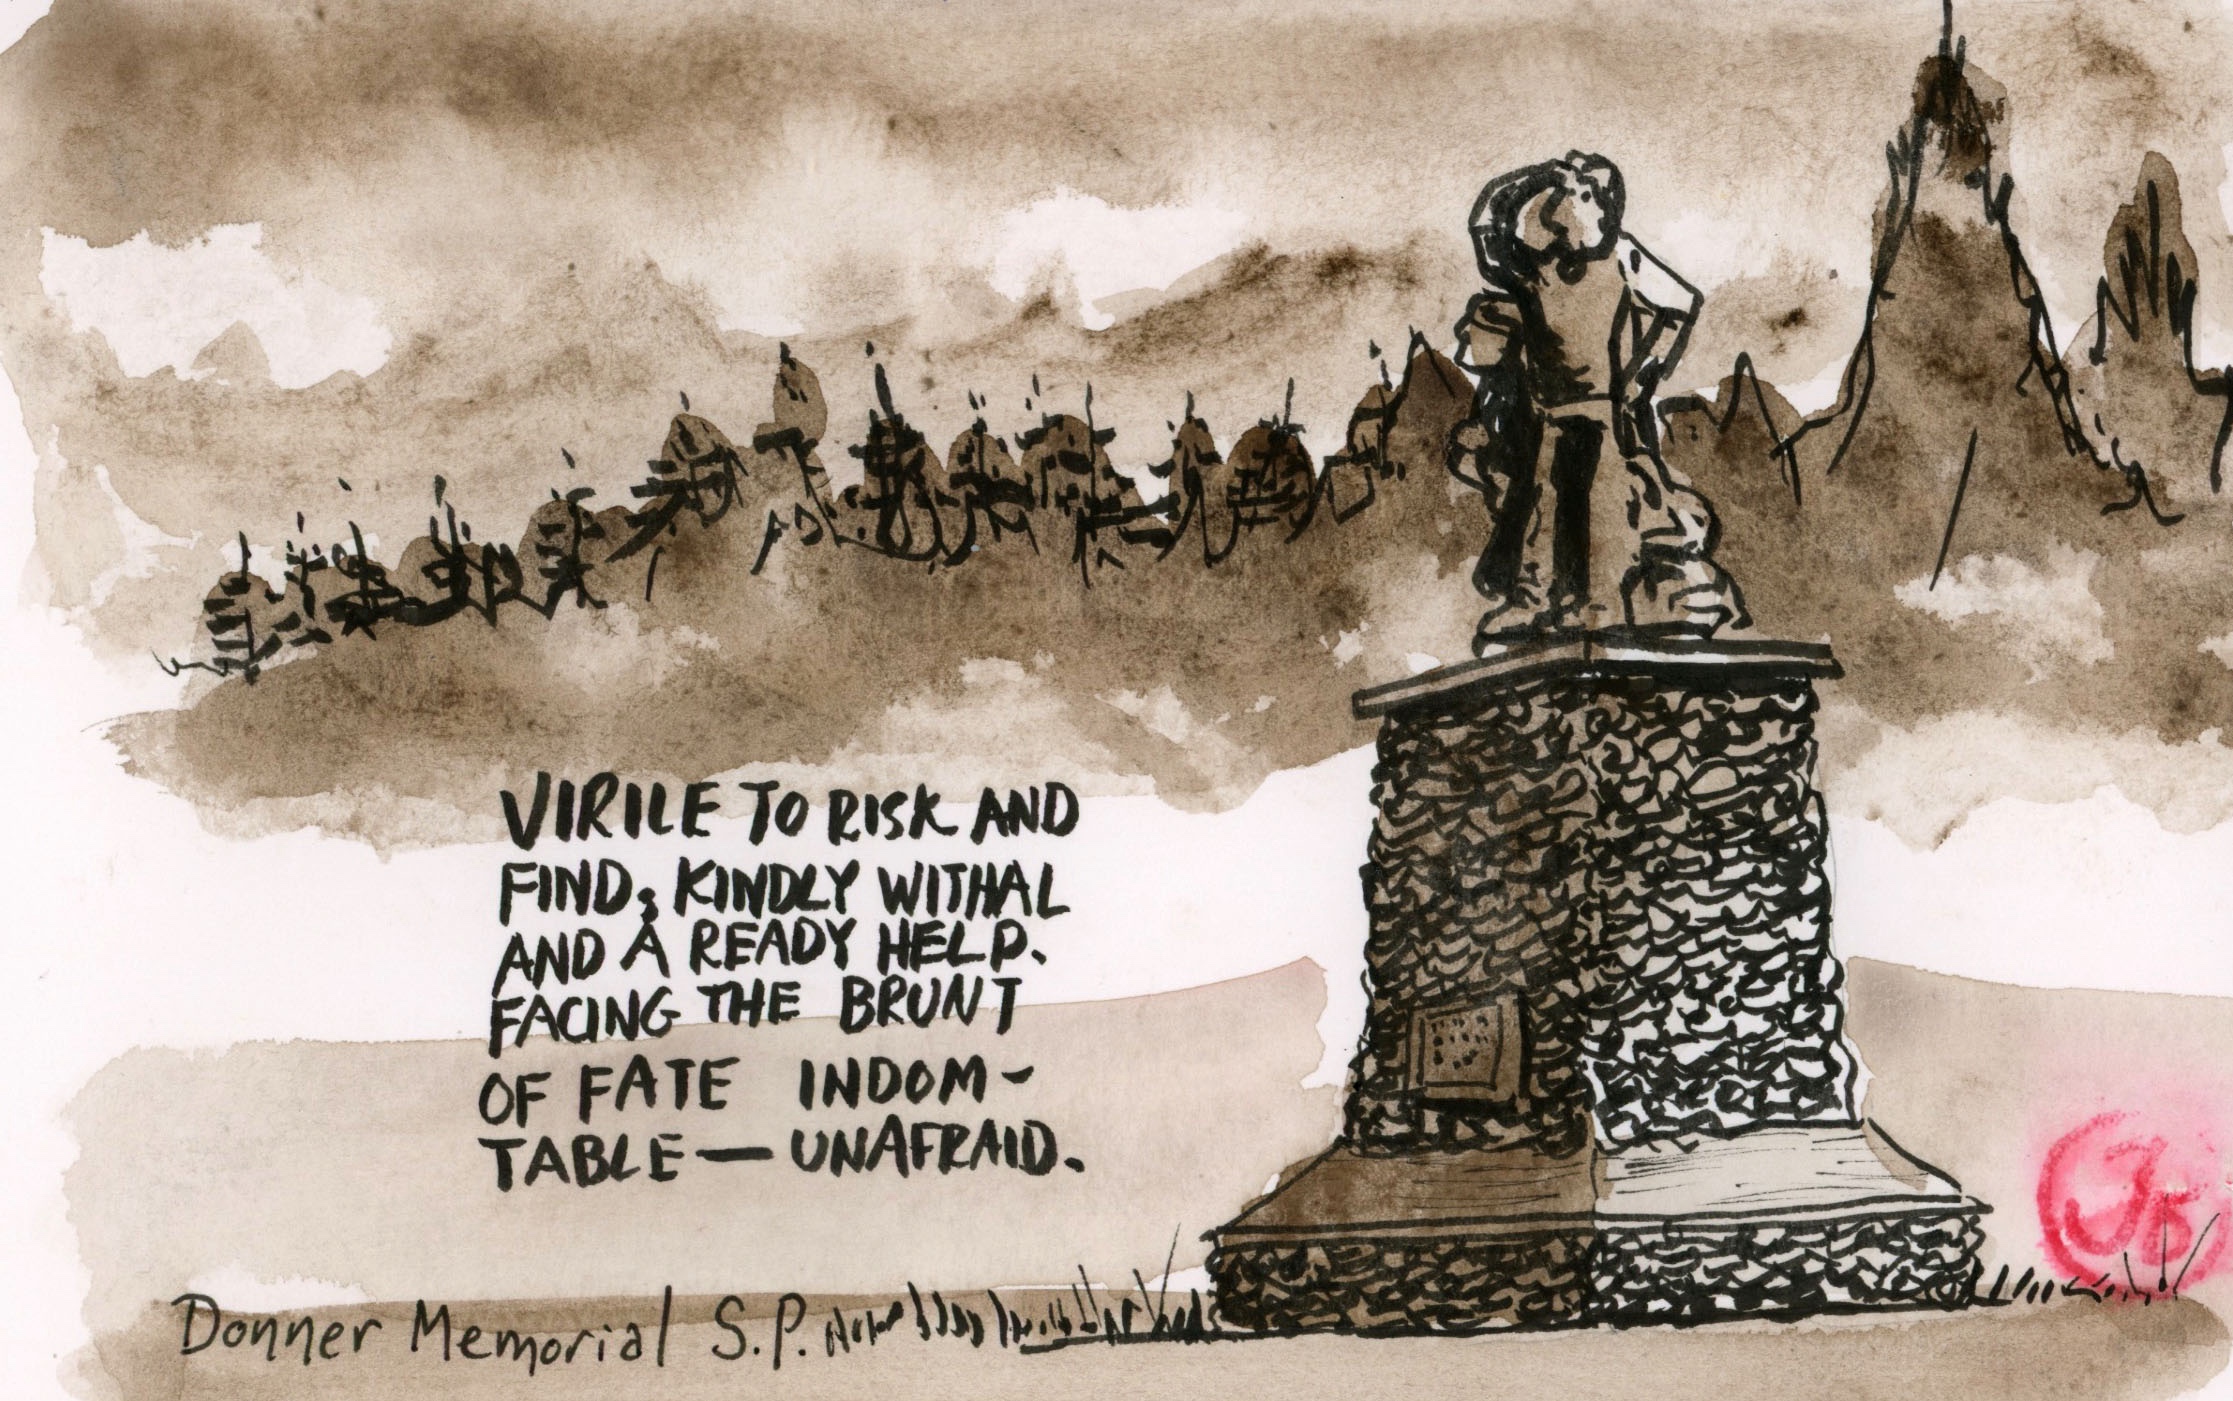 VIRILE TO RISK AND
FIND; KINDLY WITHAL
AND A READY HELP.
FACING THE BRUNT
OF FATE INDOM-
TABLE—UNAFRAID.
Donner Memorial S.P.
JB